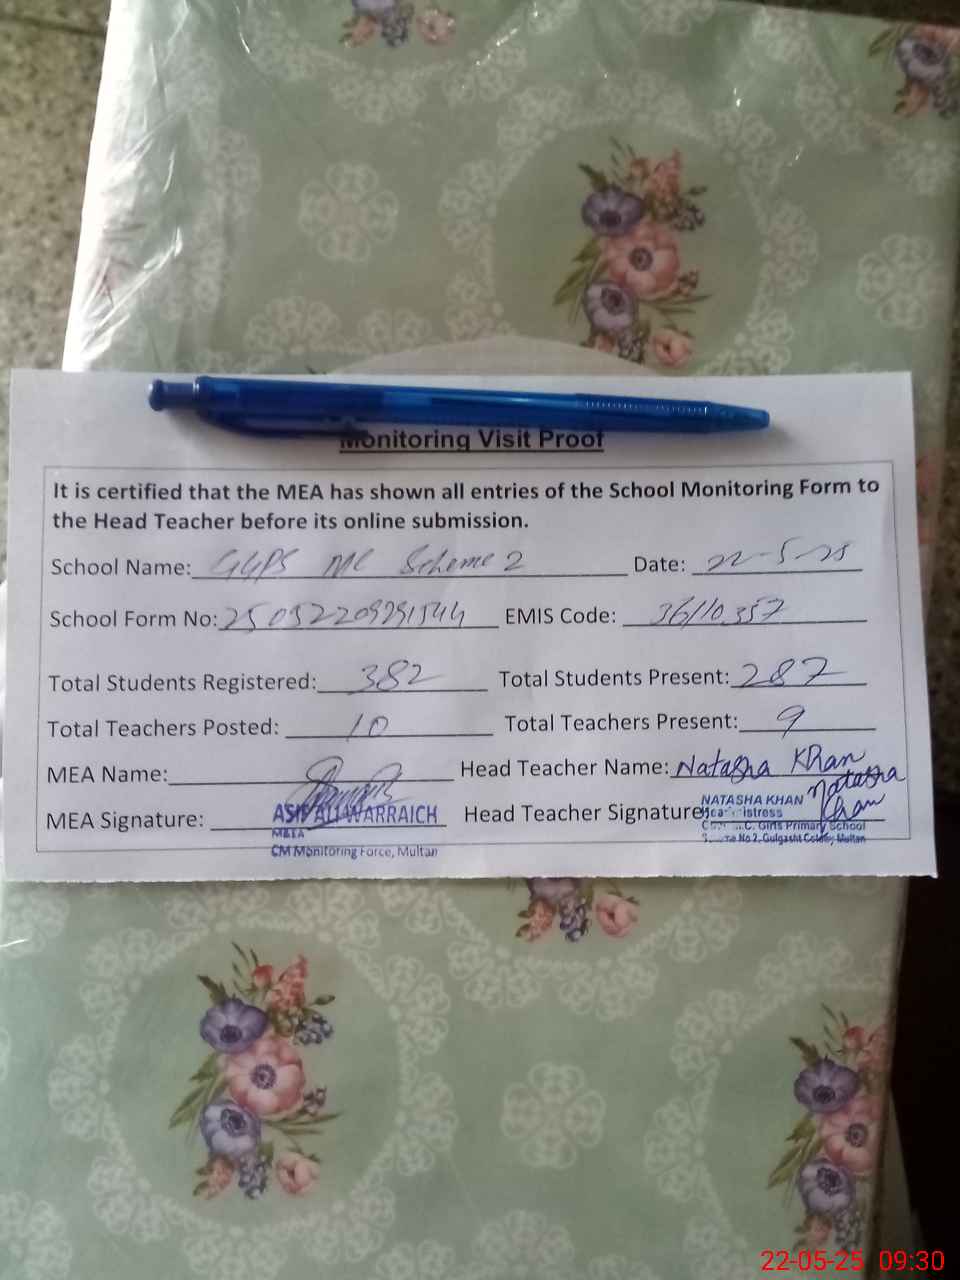 Monitoring Visit Proof
It is certified that the MEA has shown all entries of the School Monitoring Form to
the Head Teacher before its online submission.
School Name: GGPS MC Scheme 2 Date: 22-5-25
School Form No: EMIS Code: 36110357
Total Students Registered: 382 Total Students Present: 287
Total Teachers Posted: 10 Total Teachers Present: 9
MEA Name: Head Teacher Name: Natasha Khan
Natasha
Khan
MEA Signature: Head Teacher Signature:
ASIF ALI WARRAICH
MEA
CM Monitoring Force, Multan
NATASHA KHAN
Headmistress
Girls Primary School
No 2, Gulgasht Colony Multan
22-05-25 09:30